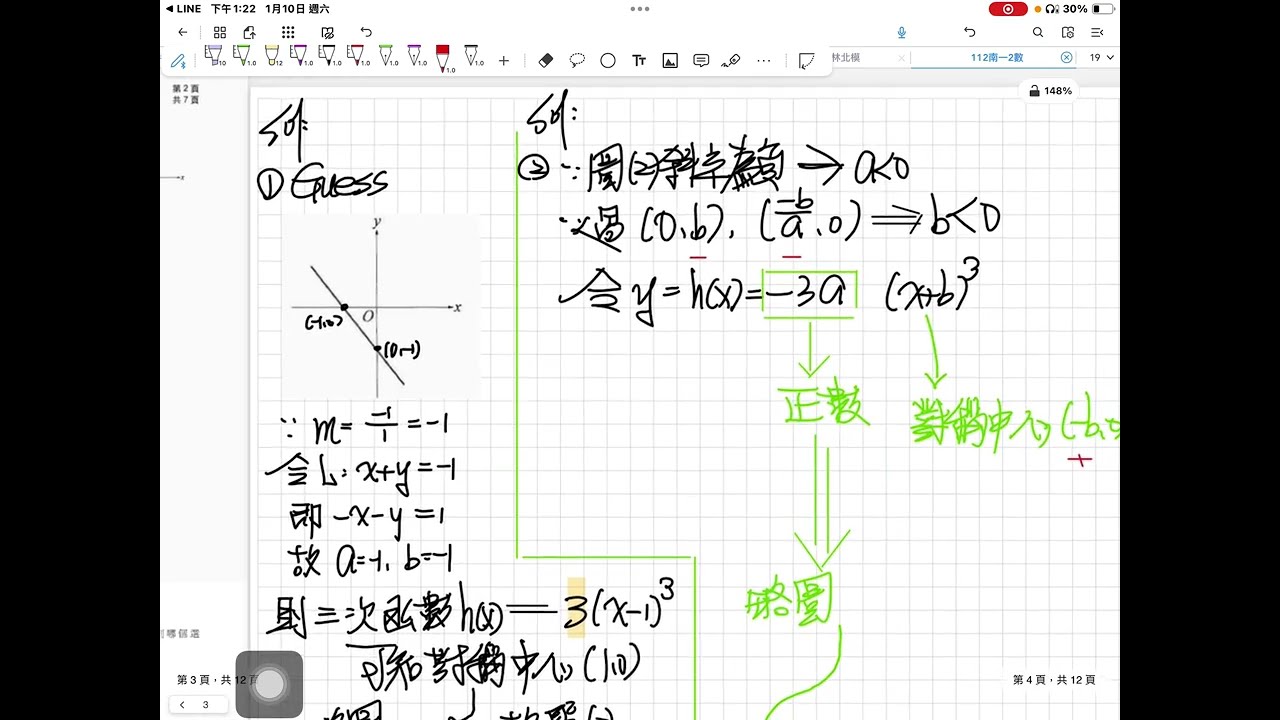 LINE 下午1:22 1月10日 週六
30%
林北模
112南一2數
19
148%
第 2 頁
共 7 頁
sol:
① Guess
y
x
O
(-1,0)
(0,-1)
∵ m = -1/1 = -1
令 L: x+y = -1
即 -x-y = 1
故 a=-1, b=-1
則三次函數 h(x) = 3(x-1)³
可知對稱中心 (1,0)
略圖
sol:
② ∵ 圖(2)斜率為負 → a<0
又過 (0,b), (-b/a, 0) ⇒ b<0
令 y = h(x) = -3a (x+b)³
正數
對稱中心 (-b,0
+
略圖
到哪個選
第 3 頁，共 12 頁
第 4 頁，共 12 頁
3